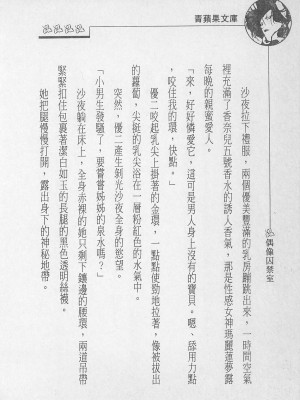 青蘋果文庫
偶像囚禁室
沙夜拉下禮服，兩個優美豐滿的乳房翩跳出來，一時間空氣
裡充滿了香奈兒五號香水的誘人香氣，那是性感女神瑪麗蓮夢露
每晚的親密愛人。
「來，好好憐愛它，這可是男人身上沒有的寶貝。嗯、舔用力點
，咬住我的環，快點。」
優二咬起乳尖上掛著的金環，一點點使勁地拉著，像被拔出
的蘿蔔，尖挺的乳尖浴在一層粉紅色的水氣中。
突然，優二產生剝光沙夜全身的慾望。
「小男生發騷了，要嘗嘗姊姊的泉水嗎？」
沙夜躺在床上，全身赤裸的她只剩下鑲邊的腰環，兩道吊帶
緊緊扣住包裹著潔白如玉的長腿的黑色透明絲襪。
她把腿慢慢打開，露出身下的神秘地帶。